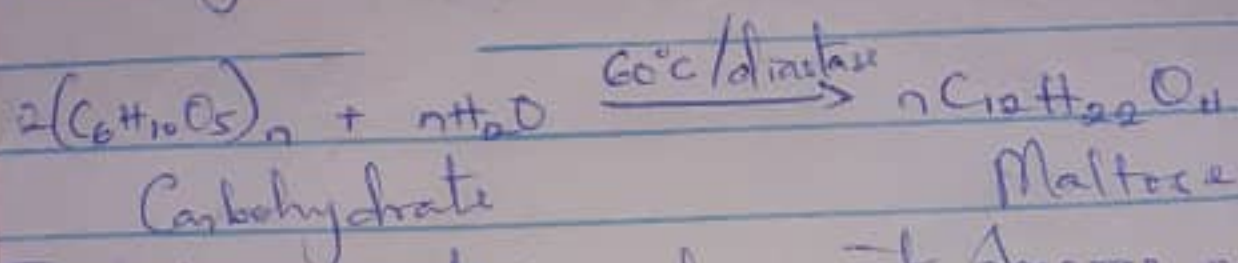 2(C₆H₁₀O₅)ₙ + nH₂O 60°C/diastase → nC₁₂H₂₂O₁₁
Carbohydrate Maltose